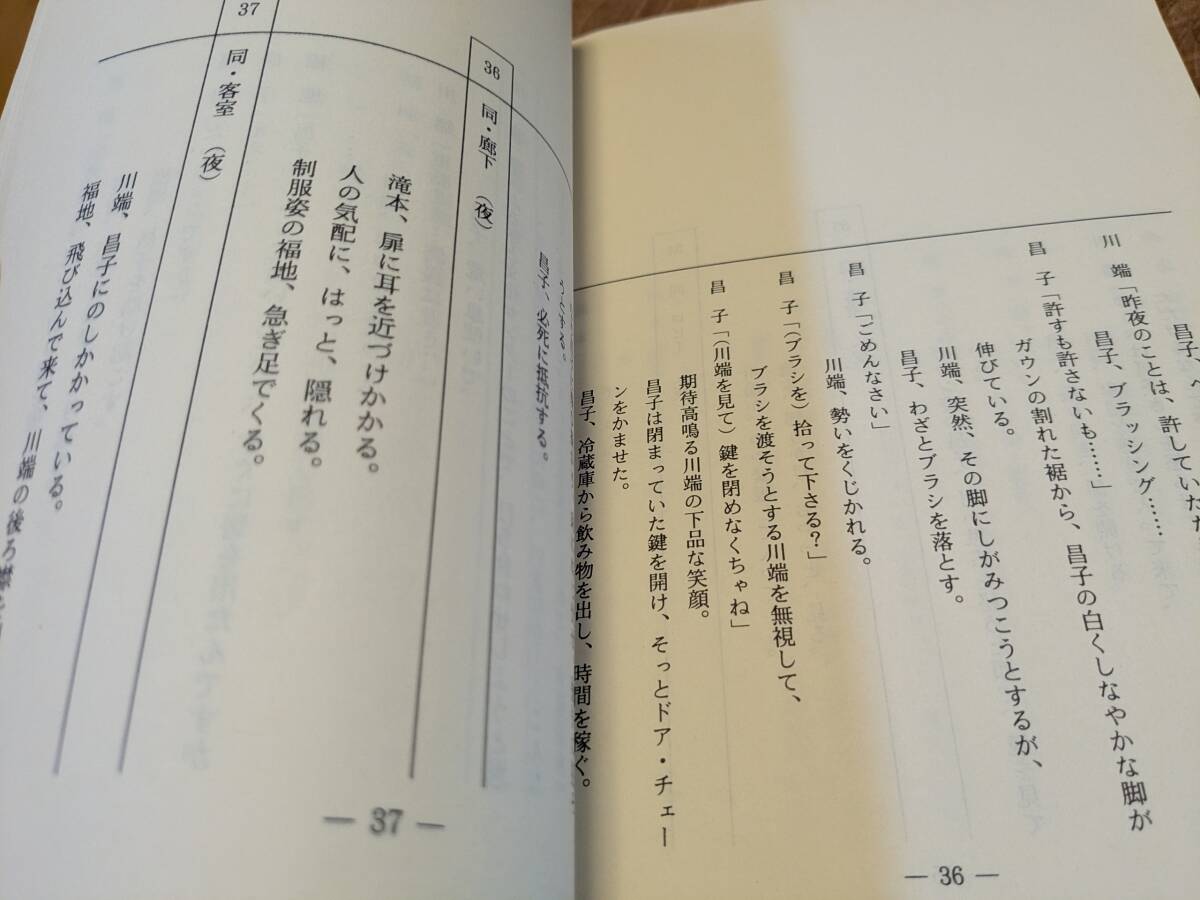 昌子、
川　端「昨夜のことは、許していただ
昌子、ブラッシング……
昌　子「許すも許さないも……」
ガウンの割れた裾から、昌子の白くしなやかな脚が
伸びている。
川端、突然、その脚にしがみつこうとするが、
昌子、わざとブラシを落とす。
昌　子「ごめんなさい」
川端、勢いをくじかれる。
昌　子「（ブラシを）拾って下さる？」
ブラシを渡そうとする川端を無視して、
昌　子「（川端を見て）鍵を閉めなくちゃね」
期待高鳴る川端の下品な笑顔。
昌子は閉まっていた鍵を開け、そっとドア・チェー
ンをかませた。
昌子、冷蔵庫から飲み物を出し、時間を稼ぐ。
― 36 ―
うとする。
昌子、必死に抵抗する。
36
同・廊下　（夜）
滝本、扉に耳を近づけかかる。
人の気配に、はっと、隠れる。
制服姿の福地、急ぎ足でくる。
37
同・客室　（夜）
川端、昌子にのしかかっている。
福地、飛び込んで来て、川端の後ろ襟
― 37 ―